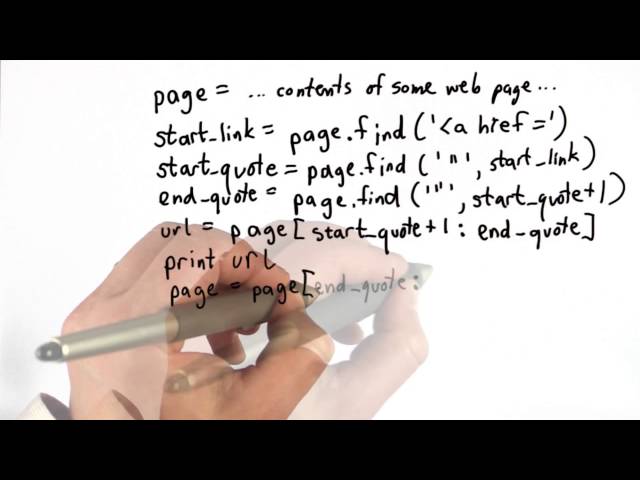 page = ... contents of some web page ...
start_link = page.find ('<a href=')
start_quote = page.find ('"', start_link)
end_quote = page.find ('"', start_quote+1)
url = page[start_quote+1 : end_quote]
print url
page = page[end_quote: